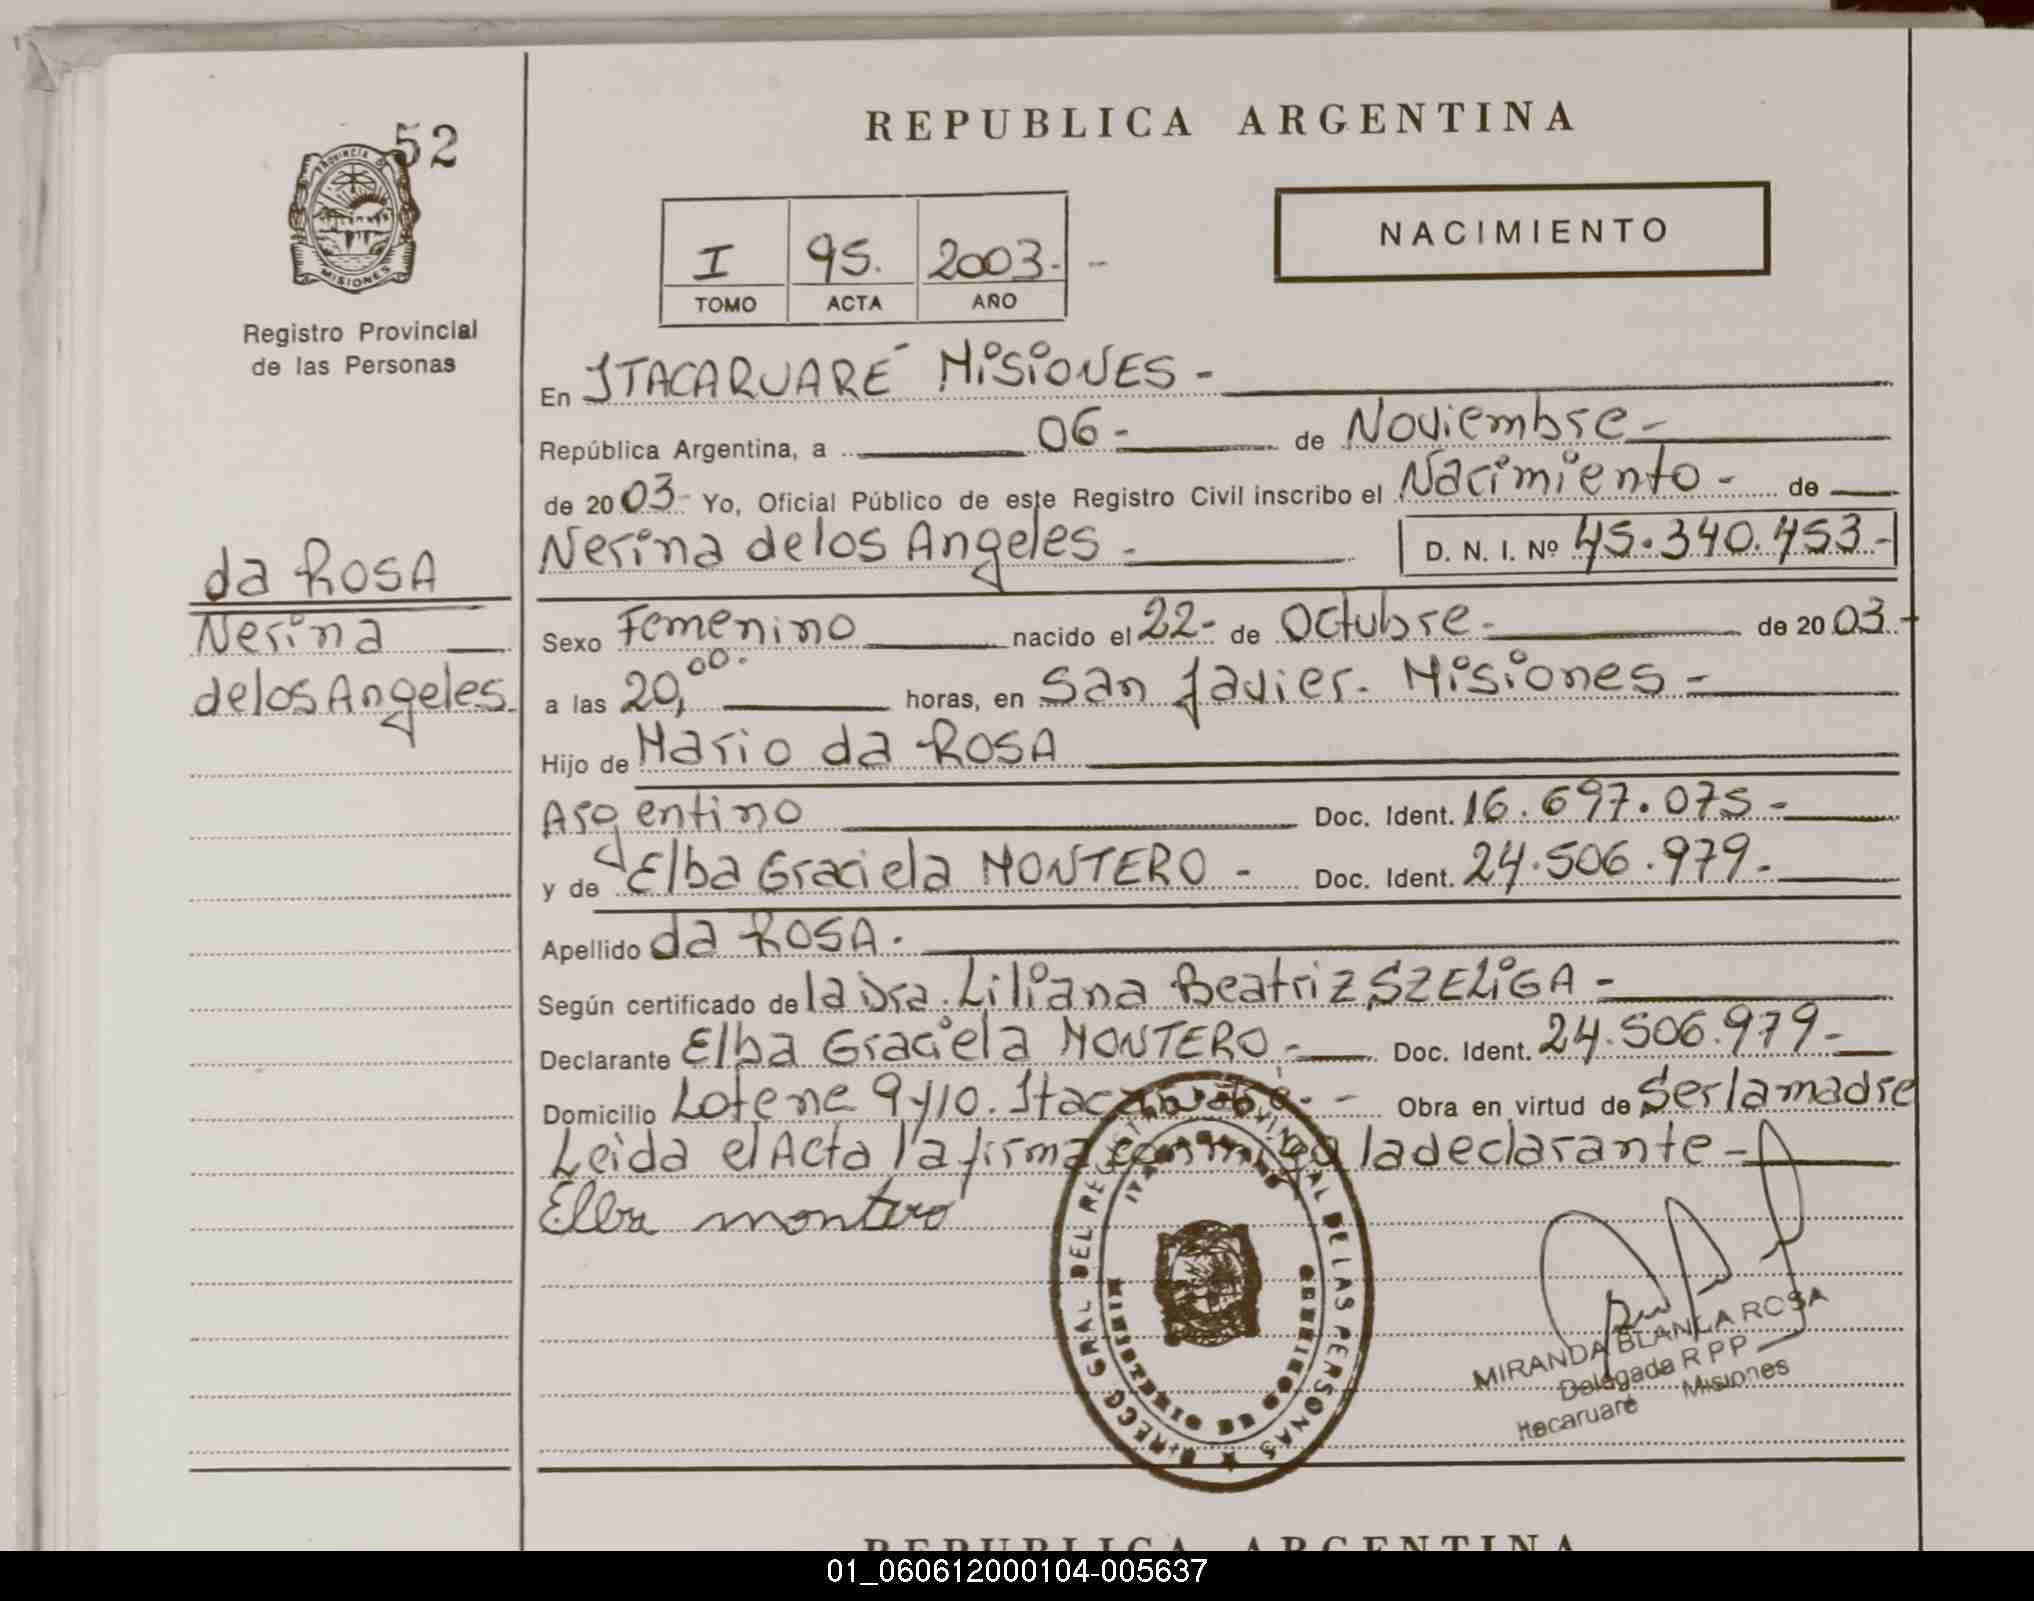 52
PROVINCIA DE
MISIONES
Registro Provincial
de las Personas
da ROSA
Nerina
de los Angeles.
REPUBLICA ARGENTINA
NACIMIENTO
I 95. 2003.-
TOMO ACTA AÑO
En ITACARUARÉ MISIONES -
República Argentina, a 06- de Noviembre -
de 2003- Yo, Oficial Público de este Registro Civil inscribo el Nacimiento - de
Nerina de los Angeles - D. N. I. Nº 45.340.453.-
Sexo Femenino nacido el 22- de Octubre - de 2003.-
a las 20,00. horas, en San Javier. Misiones -
Hijo de Mario da ROSA
Argentino Doc. Ident. 16.697.075 -
y de Elba Graciela MONTERO - Doc. Ident. 24.506.979-
Apellido da ROSA.
Según certificado de la Dra. Liliana Beatriz SZELIGA -
Declarante Elba Graciela MONTERO - Doc. Ident. 24.506.979-
Domicilio Lote ne 9 y 10. Itacaruaré. - Obra en virtud de Ser la madre
Leida el Acta la firma conmigo la declarante -
Elba montero
DIRECC GRAL DEL REGISTRO PROVINCIAL DE LAS PERSONAS
MINISTERIO DE GOBIERNO
MIRANDA BLANCA ROSA
Delegada R P P
Itacaruaré Misiones
REPUBLICA ARGENTINA
01_060612000104-005637